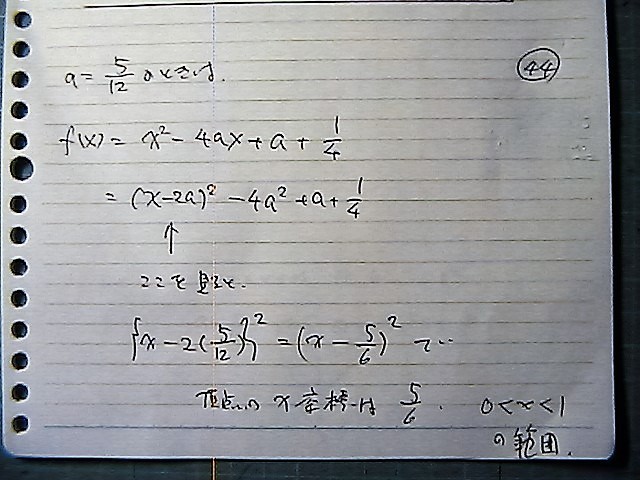 44
a = 5/12 のときは.
f(x) = x² - 4ax + a + 1/4
= (x-2a)² - 4a² + a + 1/4
↑
ここを見ると.
{x - 2(5/12)}² = (x - 5/6)² で…
頂点の x 座標は 5/6. 0<x<1
の範囲.